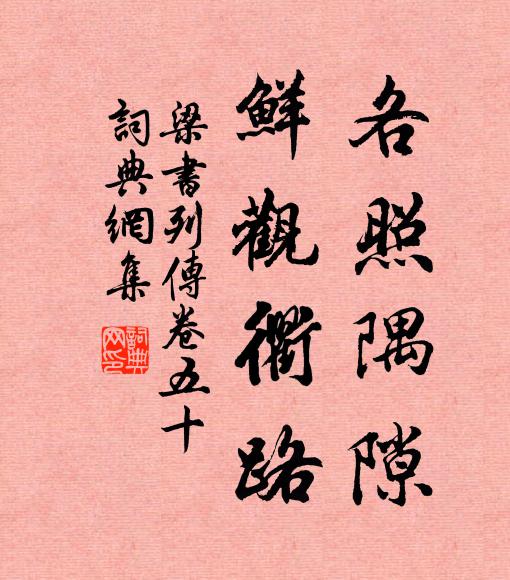 各照隅隙
鮮觀衢路
梁書列傳卷五十
詞典網集
詞典网印